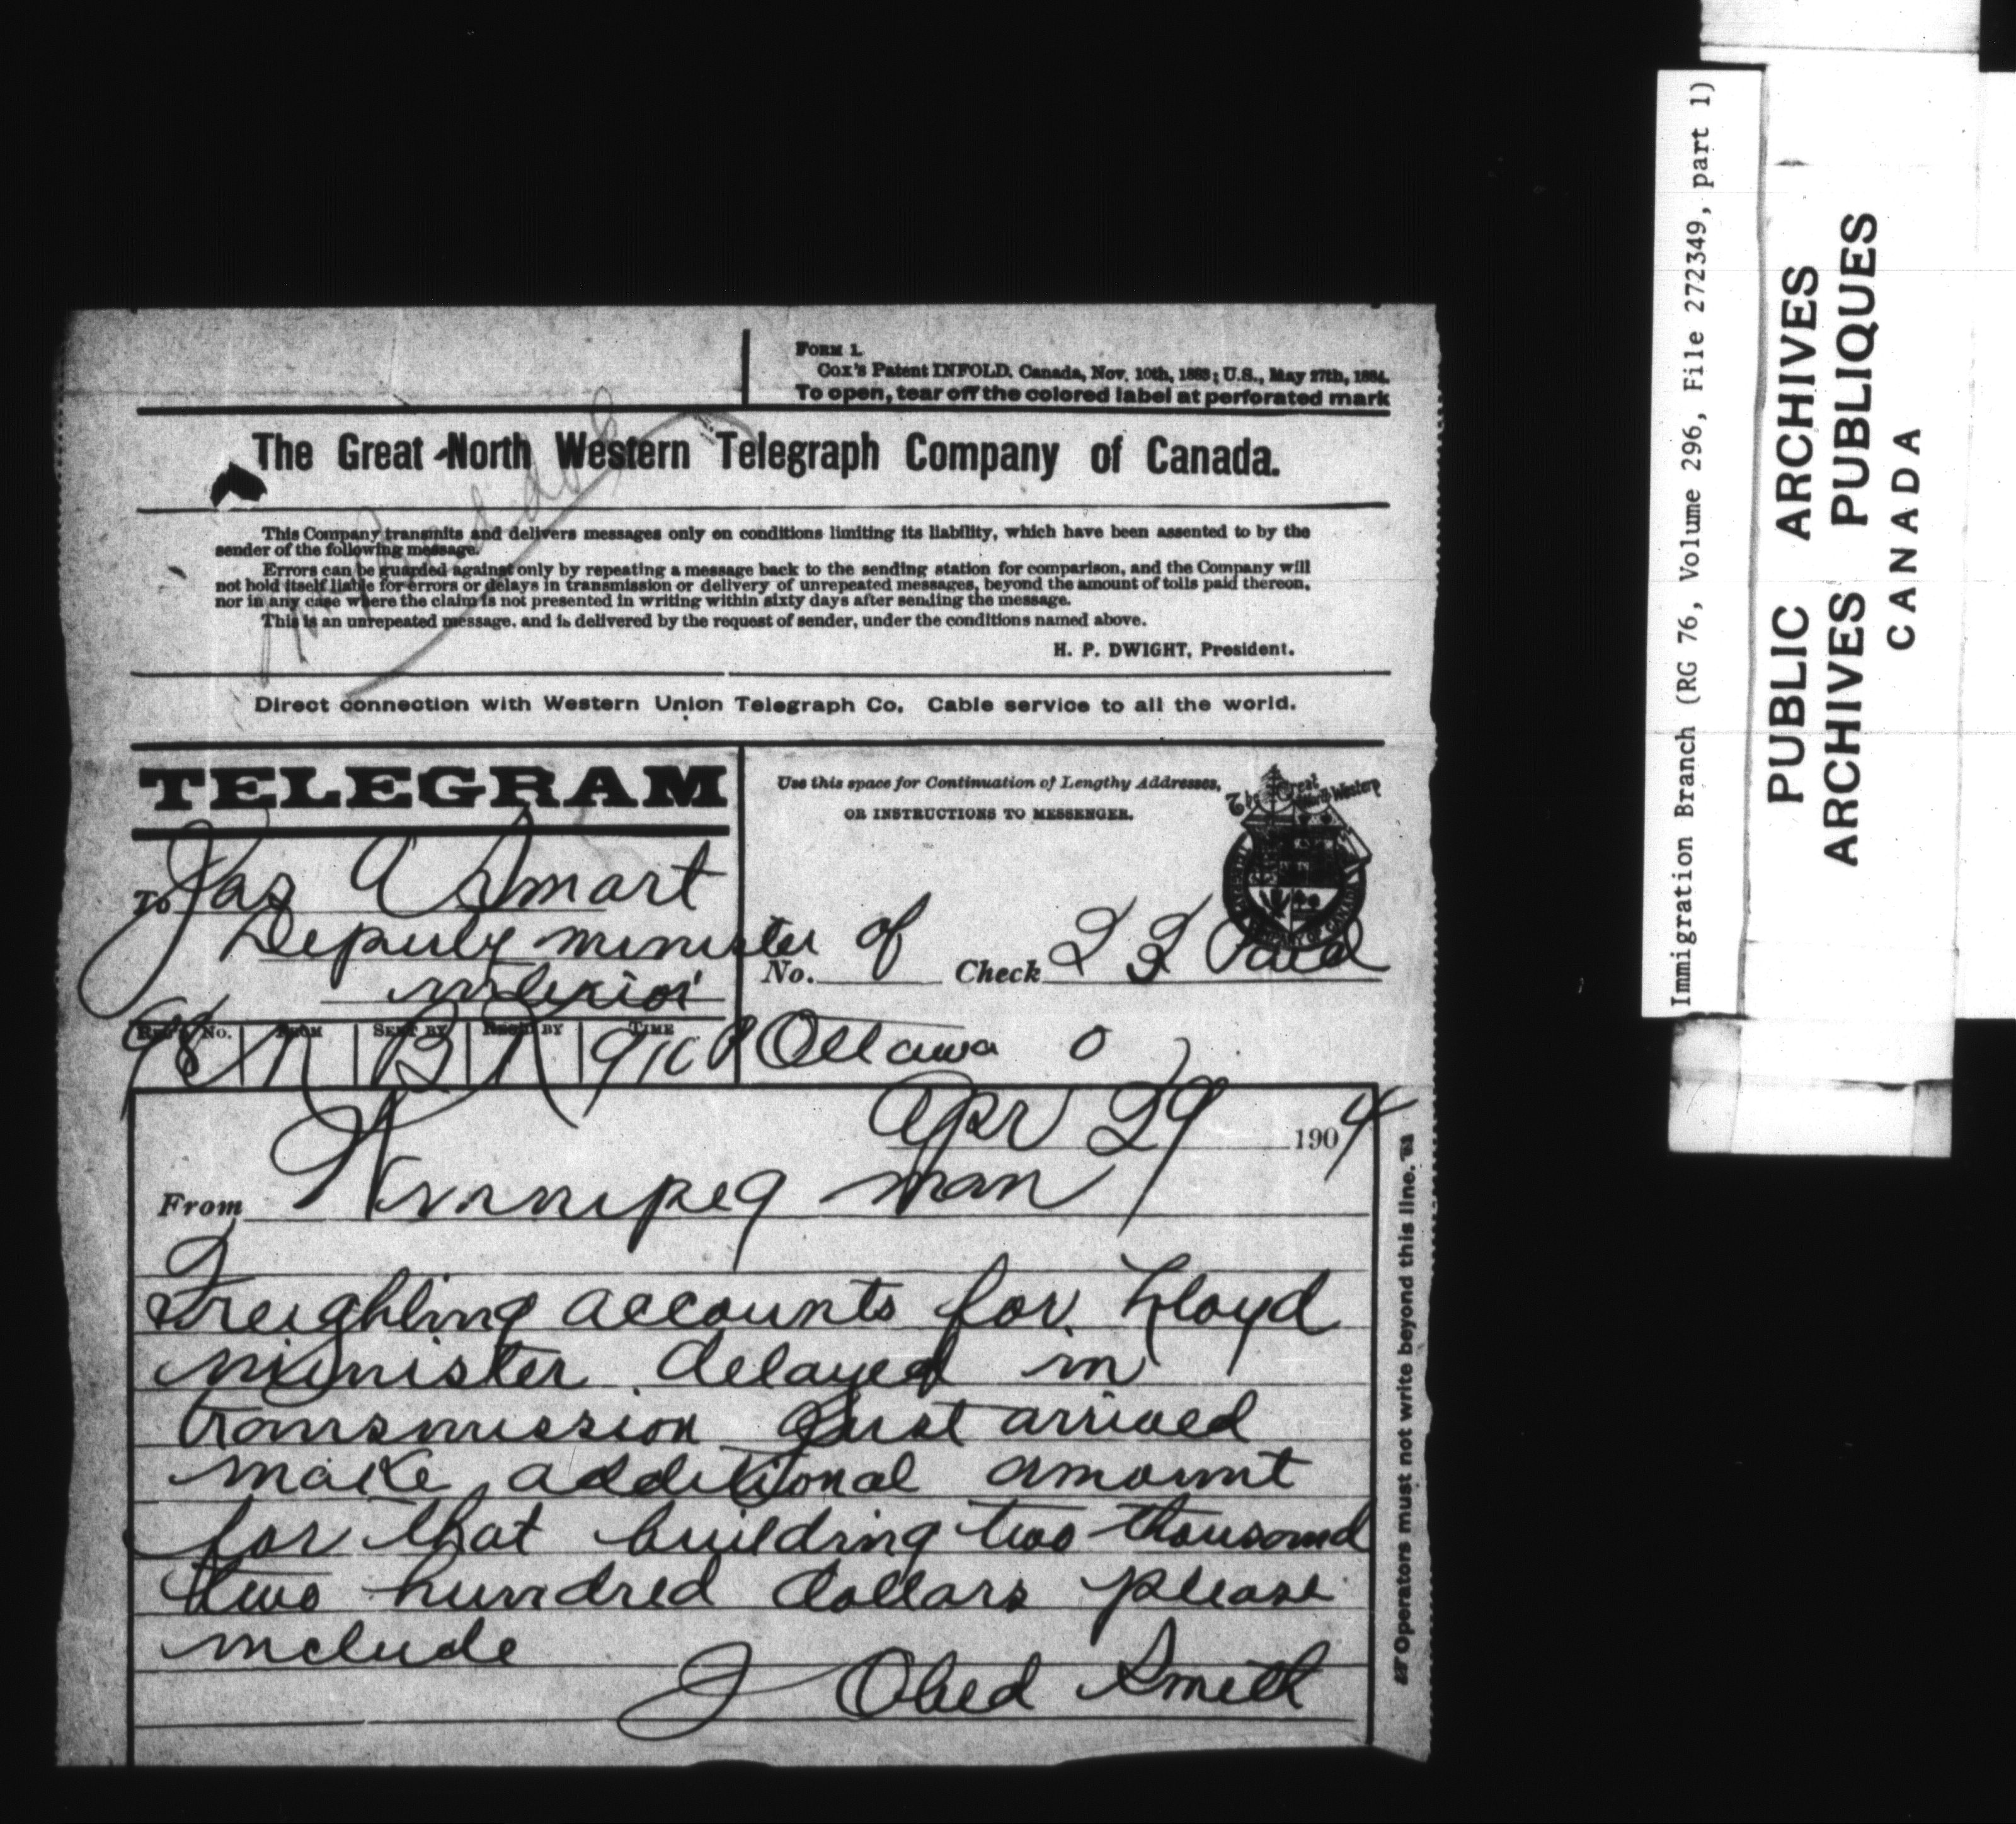 FORM 1.
Cox's Patent INFOLD. Canada, Nov. 10th, 1883; U.S., May 27th, 1884.
To open, tear off the colored label at perforated mark
The Great North Western Telegraph Company of Canada.
This Company transmits and delivers messages only on conditions limiting its liability, which have been assented to by the
sender of the following message.
Errors can be guarded against only by repeating a message back to the sending station for comparison, and the Company will
not hold itself liable for errors or delays in transmission or delivery of unrepeated messages, beyond the amount of tolls paid thereon,
nor in any case where the claim is not presented in writing within sixty days after sending the message.
This is an unrepeated message, and is delivered by the request of sender, under the conditions named above.
H. P. DWIGHT, President.
Direct connection with Western Union Telegraph Co. Cable service to all the world.
TELEGRAM
Use this space for Continuation of Lengthy Addresses,
OR INSTRUCTIONS TO MESSENGER.
The Great North Western
To Jas A Smart
Deputy minister of
No. Check Paid
interior
No. FROM SENT BY REC'D BY TIME
Ottawa O
Apr 29 1904
From Winnipeg man
Freighting accounts for Lloyd
minister delayed in
transmission Just arrived
make additional amount
for that building two thousand
two hundred dollars please
include
J Obed Smith
Operators must not write beyond this line.
Immigration Branch (RG 76, Volume 296, File 272349, part 1)
PUBLIC ARCHIVES
ARCHIVES PUBLIQUES
CANADA